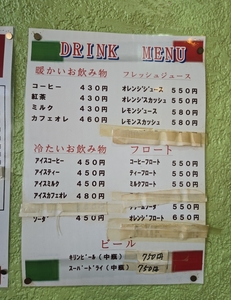 DRINK MENU
暖かいお飲み物
コーヒー 430円
紅茶 430円
ミルク 430円
カフェオレ 460円
フレッシュジュース
オレンジジュース 550円
オレンジスカッシュ 550円
レモンジュース 580円
レモンスカッシュ 580円
冷たいお飲み物
アイスコーヒー 450円
アイスティー 450円
アイスミルク 450円
アイスカフェオレ 480円
ソーダ 450円
フロート
コーヒーフロート 550円
ティーフロート 550円
ミルクフロート 550円
550円
オレンジフロート 650円
ビール
キリンビール(中瓶) 750円
スーパードライ(中瓶) 750円